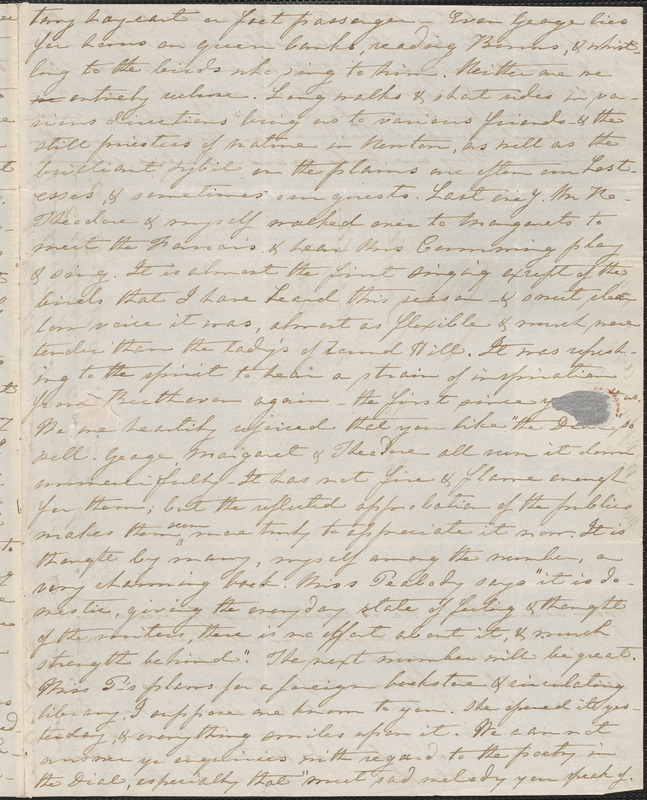 hay cart or foot passenger – Even George lies
for hours on green banks, reading Burns, & whist-
ling to the birds who sing to him. Neither are we
entirely recluse. Long walks & short rides in va-
rious directions bring us to various friends & the
still priestess of nature in Newton, as well as the
brilliant sybil on the plains are often our host-
esses, & sometimes our guests. Last eve'g. Mr R.
Theodore & myself walked over to Margarets to
meet the & hear Miss Cumming play
& sing. It is almost the first singing except of the
birds that I have heard this season – & sweet
voice it was, almost as flexible & much more
tender than the lady's of Round Hill. It was refresh-
ing to the spirit to hear a strain of inspiration
from Beethoven again – the first since us.
We are heartily rejoiced that you like "the Dial" so
well. George Margaret & Theodore all run it down
unmercifully – It has not fire & flame enough
for them; but the reflected approbation of the public
makes them seem more truly to appreciate it now. It is
thought by many, myself among the number, a
very charming book. Miss Peabody says "it is do-
mestic, giving the everyday state of feeling & thought
of the writers, there is no effort about it, & much
strength behind". The next number will be great.
Miss P's plans for a foreign bookstore & circulating
library I suppose are known to you. She opened it yes-
terday, & everything smiles upon it. We can not
answer yr enquiries with regard to the poetry in
the Dial, especially that "most sad melody you speak of.